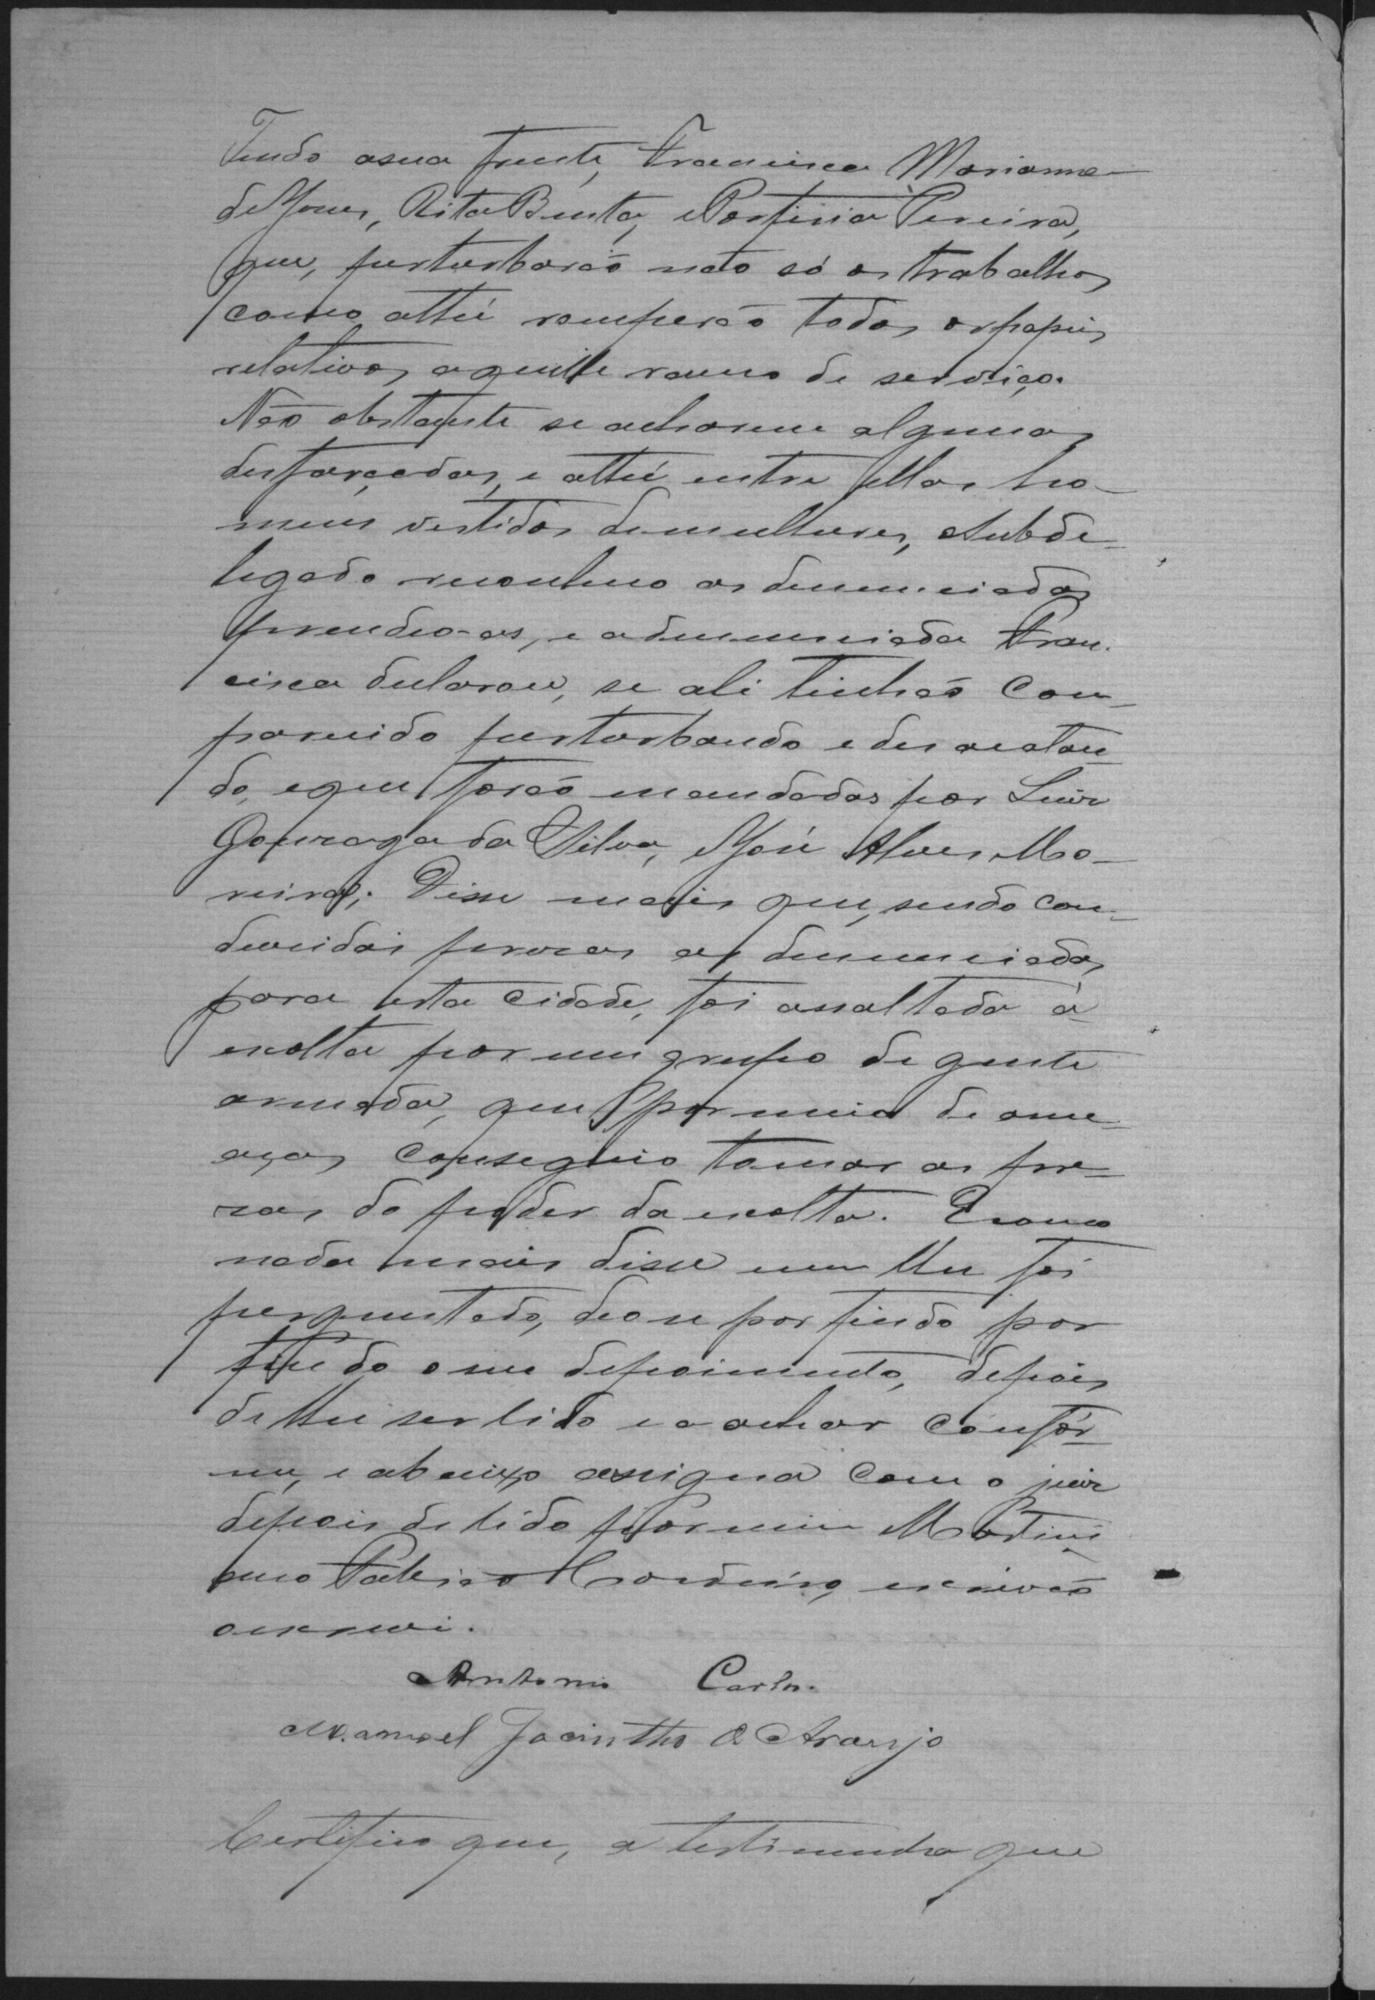 Tendo asua frente, Francisca Marianna
de Jesus, Rita Benta, e Porfiria Pereira,
que, perturbarão não só os trabalhos
como atthé romperão todos os papeis
relativos aquelle ramo de serviço.
Não obstante se acharem algumas
desfarçadas, e atthé entre ellas ho-
mens vestidos de mulheres, o Subde-
legado reconheceo as denunciadas
prendeo-as, e a denunciada Fran-
cisca declarou, se ali tinhão Com-
parecido perturbando e desacatan-
do, e que forão mandadas por Luiz
Gonzaga da Silva, e José Alves Mo-
reira; Disse mais que, sendo con-
duzidas prezas as denunciadas
para esta Cidade, foi assaltada á
escolta por um grupo de gente
armada, que por meio de ame-
aças conseguio tomar as pre-
zas do poder da escolta. E como
nada mais disse nem lhe foi
perguntado, deo-se por findo por
findo o seu depoimento, depois
de lhe ser lido e o achar confór-
me, e abaixo assigna com o juiz
depois de lido por mim Martini
ano escrivão
o escrevi.
Antonio Carlos.
Manoel Jacintho de Araujo
Certifico que, a testimunha que